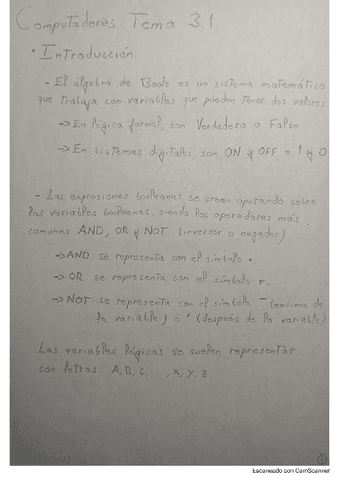 Computadores Tema 3.1
• Introducción
- El álgebra de Boole es un sistema matemático
que trabaja con variables que pueden tener dos valores
→ En lógica formal, son Verdadero o Falso
→ En sistemas digitales, son ON y OFF o 1 y 0.
- Las expresiones booleanas se crean operando sobre
las variables booleanas, siendo los operadores más
comunes AND, OR y NOT. (inversor o negador)
→ AND: se representa con el símbolo •.
→ OR: se representa con el símbolo +.
→ NOT: se representa con el símbolo ‾ (encima de
la variable) o ' (después de la variable)
Las variables lógicas se suelen representar
con letras A, B, C, , x, y, z
①
Escaneado con CamScanner